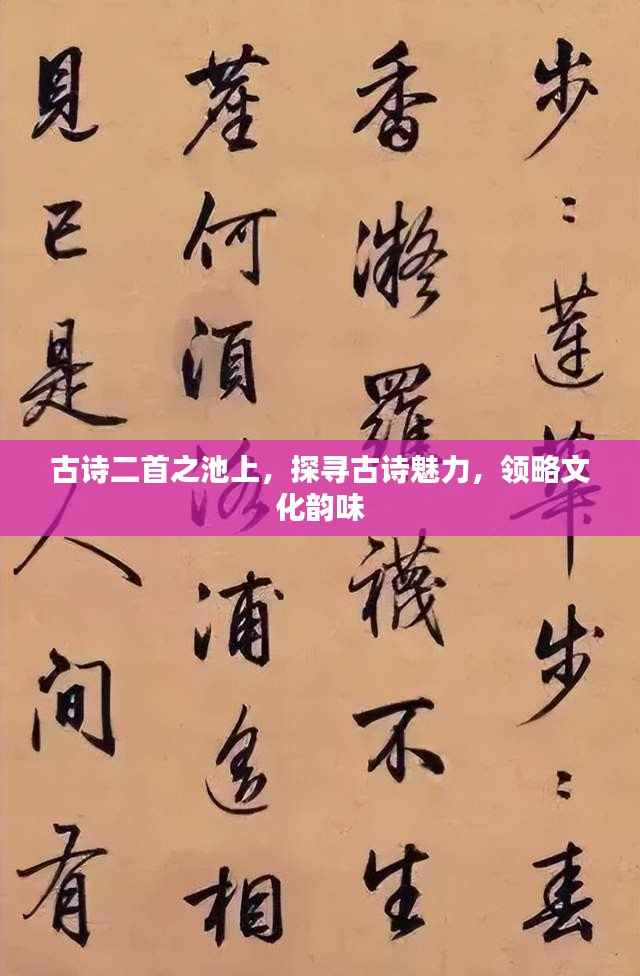 步〻蓮華步〻春
香凝羅襪不生
塵何須洛浦遙相
見已是人間有
古诗二首之池上，探寻古诗魅力，领略文
化韵味